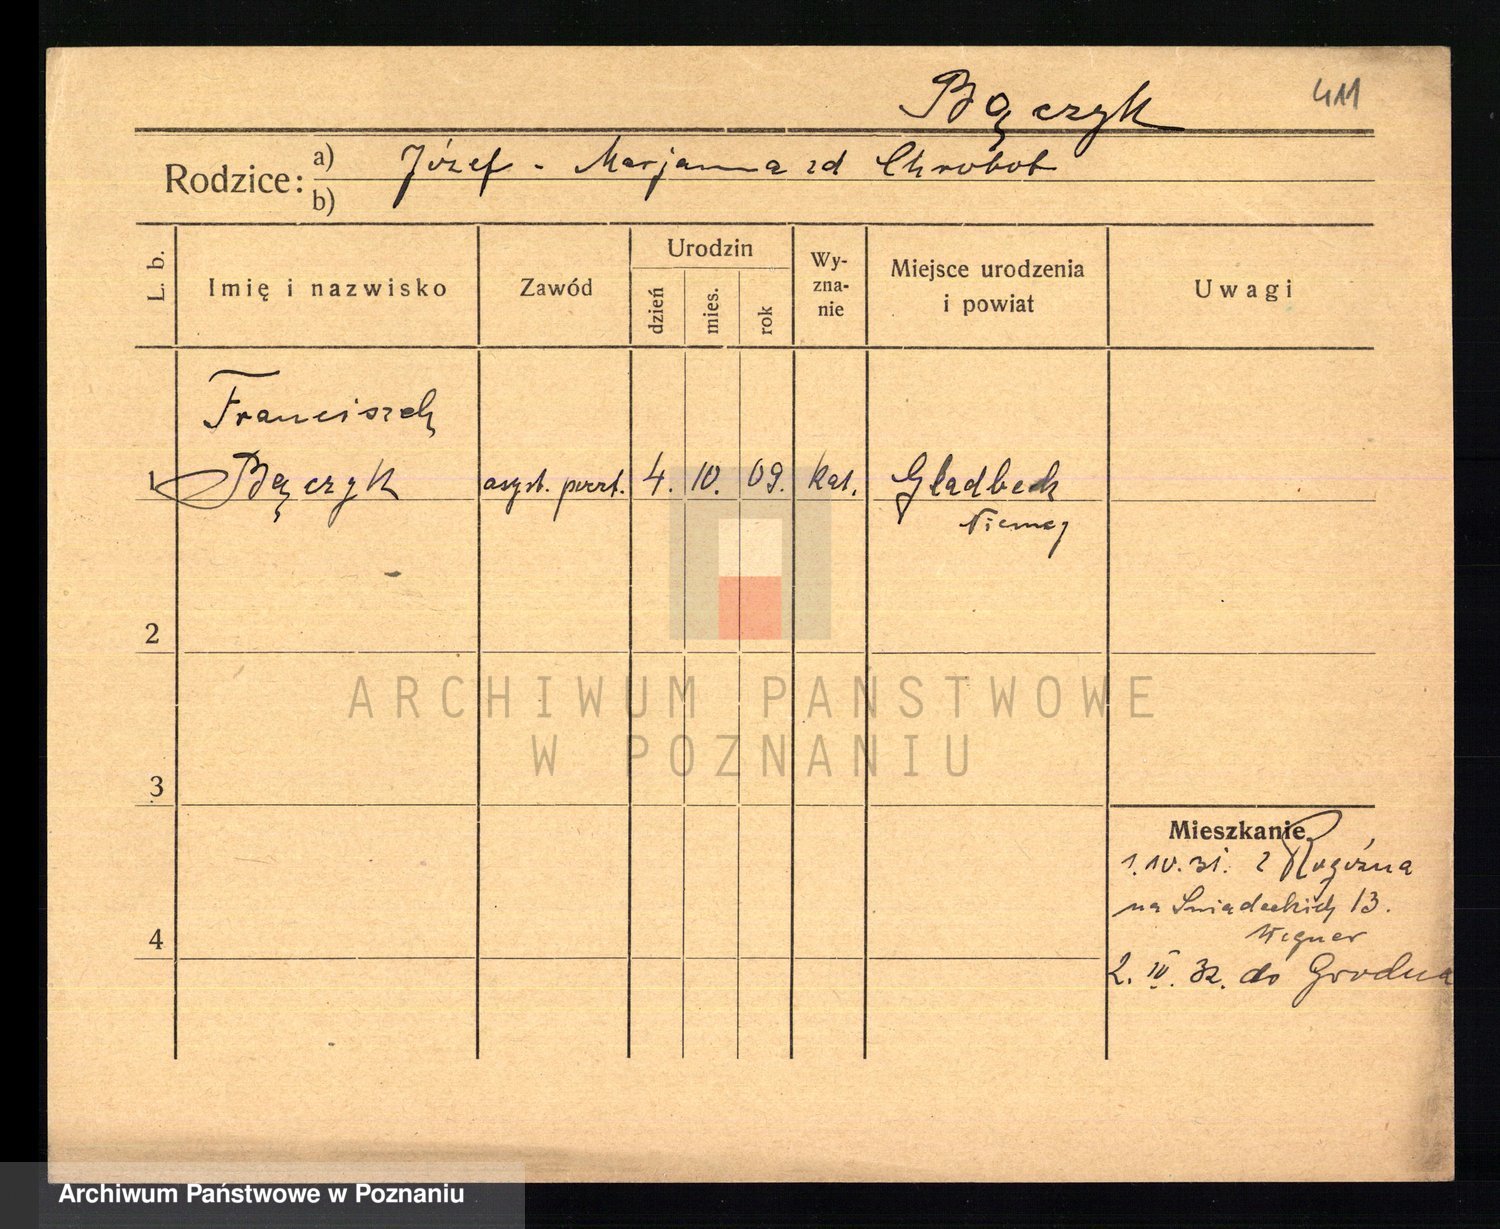 Bączyk 411
Rodzice: a) Józef - Marjanna zd Chrobot
b)
L. b. Imię i nazwisko Zawód Urodzin dzień mies. rok Wy-zna-nie Miejsce urodzenia i powiat Uwagi
Franciszek
1 Bączyk asyst. poczt. 4. 10. 09. kat. Gladbeck
Niemcy
2
ARCHIWUM PAŃSTWOWE
W POZNANIU
3
Mieszkanie
1.10.31. z Rogóźna
na Śniadeckich 13.
Wegner
4
2. IV. 32. do Grodna
Archiwum Państwowe w Poznaniu